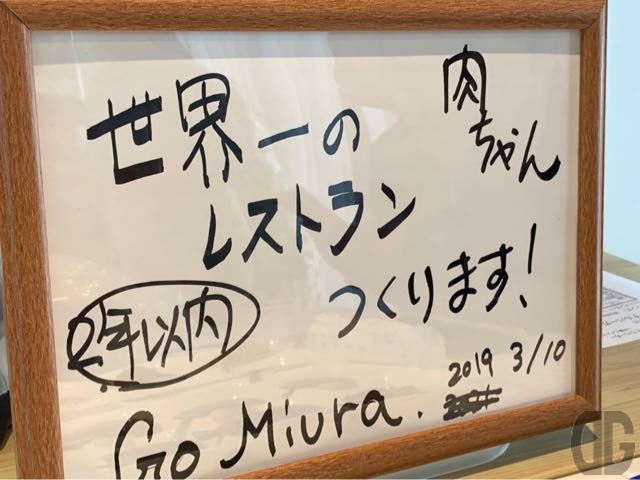 肉
ちゃん
世界一の
レストラン
つくります！
2年以内
2019 3/10
Go Miura.
DG